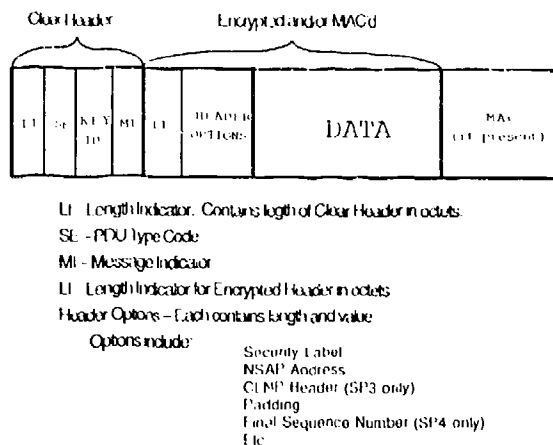 Clear Header
Encrypted and/or MACd
LI
SE
KEY
ID
MI
LI
HEADER
OPTIONS
DATA
MAC
(if present)
LI Length Indicator. Contains legth of Clear Header in octets.
SE - PDU Type Code
MI - Message Indicator
LI Length Indicator for Encrypted Header in octets
Header Options - Each contains length and value
Options include:
Security Label
NSAP Address
CLNP Header (SP3 only)
Padding
Final Sequence Number (SP4 only)
Etc